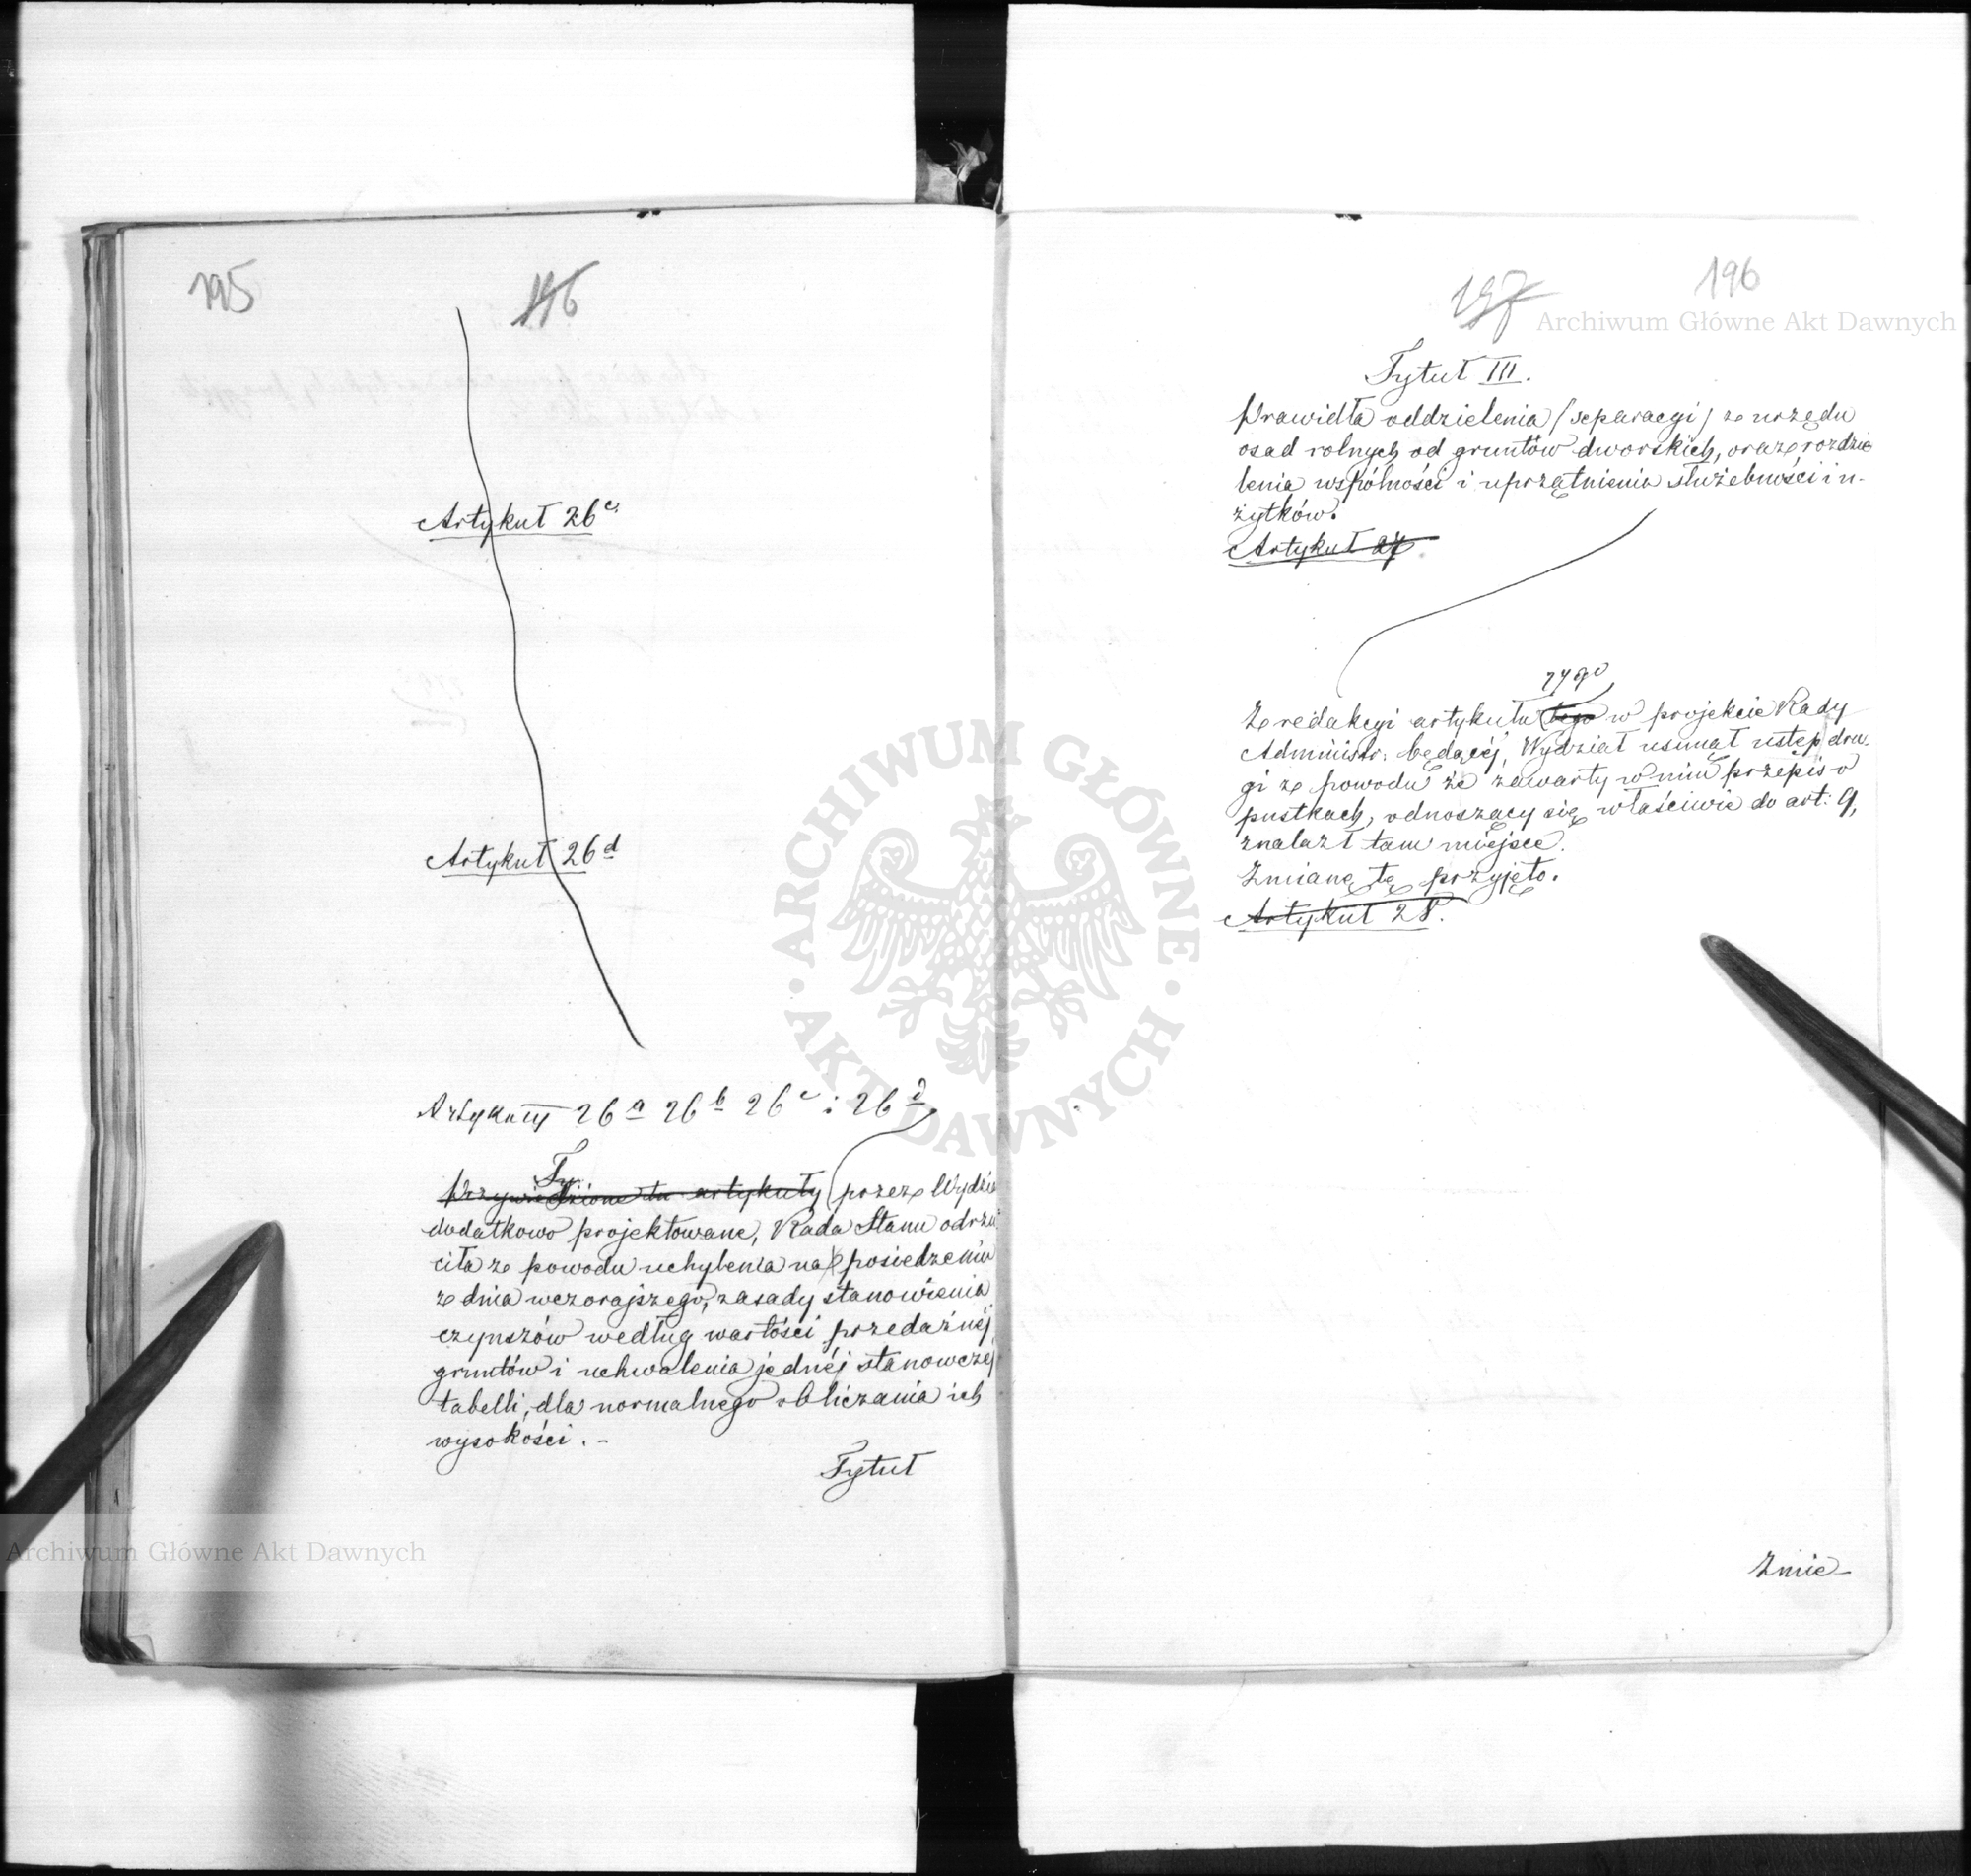 195
196
Artykuł 26c.
Artykuł 26d
Artykuły 26a 26b 26c i 26d
Ty
Przywiedzione tu artykuły przez Wydzia
dodatkowo projektowane, Rada Stanu odrzu
ciła z powodu uchylenia na posiedzeniu
z dnia wczorajszego, zasady stanowienia
czynszów według wartości przedażnéj
gruntów i uchwalenia jednéj stanowczej
tabelli, dla normalnego obliczania ich
wysokości. -
Tytuł
197
196
Tytuł III.
Prawidła oddzielenia (separacyi) z urzędu
osad rolnych od gruntów dworskich, oraz rozdzie
lenia wspólności i uprzątnienia służebności i u-
żytków.
Artykuł 27.
27go
Z redakcyi artykułu tego w projekcie Rady
Administr: będącéj, Wydział usunął ustęp dru-
gi z powodu że zawarty w nim przepis o
pustkach, odnoszący się właściwie do art: 9,
znalazł tam miejsce.
Zmianę tę przyjęto.
Artykuł 28.
Zmie-
Archiwum Główne Akt Dawnych
Archiwum Główne Akt Dawnych
ARCHIWUM GŁÓWNE · AKT DAWNYCH ·